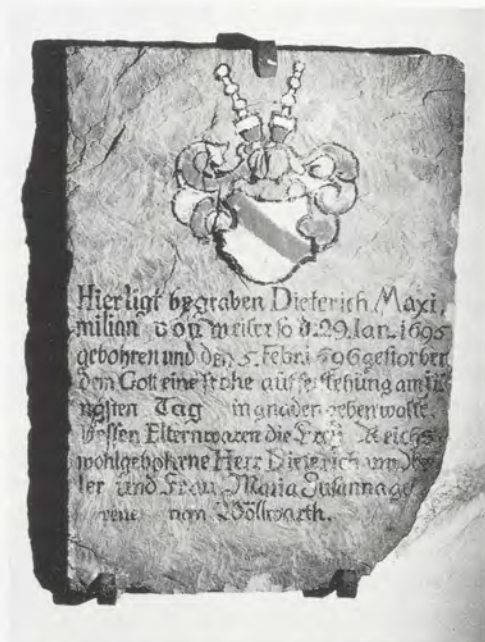 Hier ligt begraben Dieterich Maxi,
milian von weiler so d. 29. Ian. 1695
gebohren und den 5. Febr. 1696 gestorben
dem Gott eine frohe aufferstehung am iü
ngsten Tag in gnaden geben wolle.
dessen Eltern waren die Frey Reichs
wohlgebohrne Herr Dieterich von
ler und Frau Maria Susanna ge
von Wöllwarth.